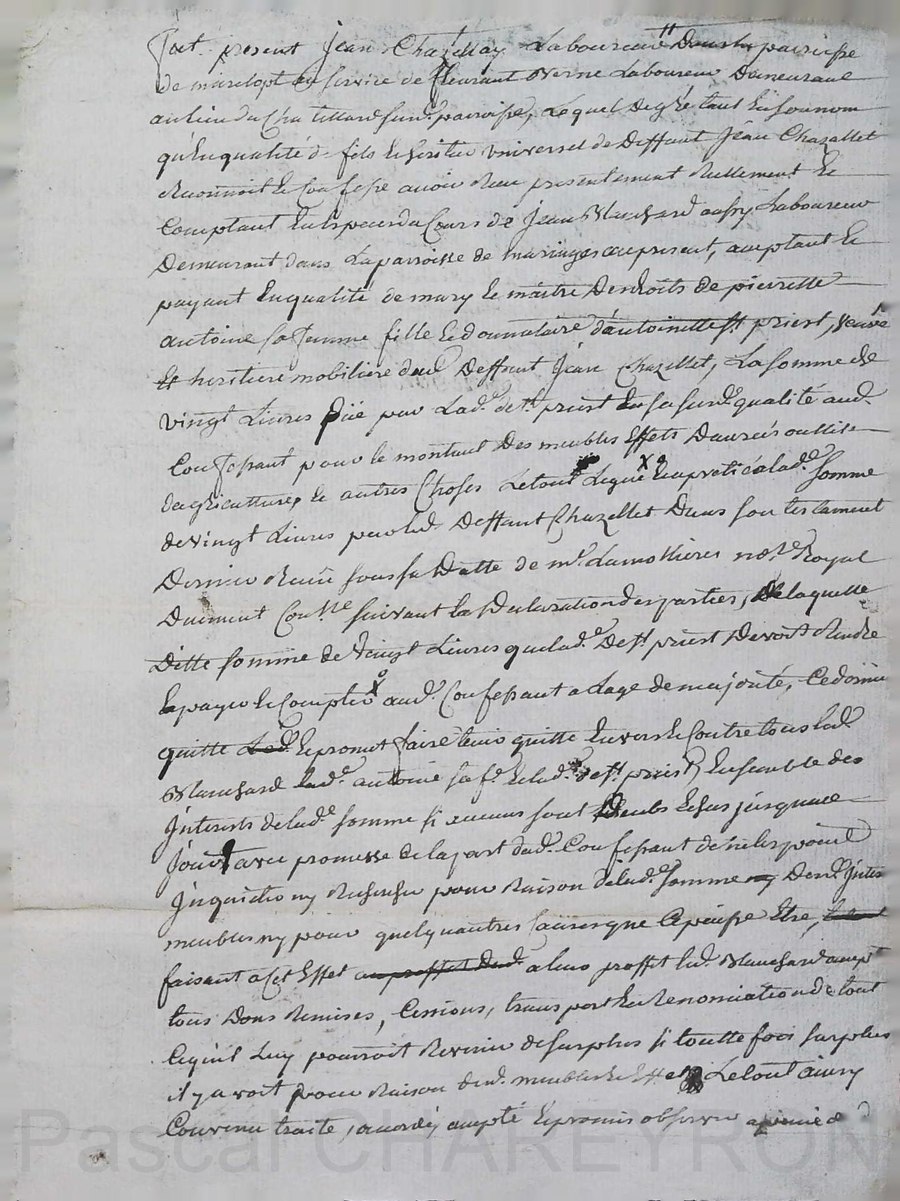 fut present Jean Chazellay Laboureur paroisse
de marclopt en service de fleurant verne Laboureur Demeurant
au lieu du Chatillard susd. paroisse, Lequel de gré tant En son nom
qu'En qualité de fils heritier Universel de Deffunt Jean Chazallet
Reconnoit Et Confesse avoir Receu presentement Reellement Et
Comptant En Especes du Cours de Jean Blanchard aussy Laboureur
Demeurant dans La parroisse de mariages au present, acceptant Et
payant En qualité de mary Et maitre Des droits de pierrette
antoine sa femme fille Et donnataire d'antoinette st priest, veuve
Et heritiere mobiliere dud. Deffunt Jean Chazellet, La somme de
vingt Livres Düe par Lad.e de st. priest En sa susd. qualité aud.
Confessant pour le montant Des meubles Effets Danrées outtils
d'agriculture, Et autres Choses Letout Legué a lad.e Somme
de vingt Livres par led. Deffunt Chazellet Dans son testament
Dernier Receu sous sa Datte de m.e Lamottieres not.re Royal
Duement Con.lle suivant La Declaration des parties, De laquelle
Ditte somme de vingt Livres que lad.e De st priest Devoit Rendre
Et payer Et Compter aud. Confessant a Lage de majorité,
quitte Et promet faire tenir quitte Envers Et Contre tous led.
Blanchard lad.e antoine sa f.e Et lad.e de st. priest, Ensemble des
Interests de lad.e somme si aucuns sont Deubs Echus jusqu'a ce
Jour avec promesse de la part dud. Confessant de ne les point
Jnquiéter ny Rechercher pour Raison de lad.e somme
meubles ny pour quelqu'autres Causes que Ce puisse Etre,
faisant a Cet Effet au proffit dud. a leur proffit led. Blanchard accept
tous Dons Remises, Cessions, transport Et Renonciation de tout
Ce qu'il Luy pourroit Revenir de surplus si toutte fois surplus
il y avoit pour Raison desd. meubles Et Effets, Letout ainsy
Convenu traité, accordé, accepté Et promis observer a peine d
Pascal CHAREYRON